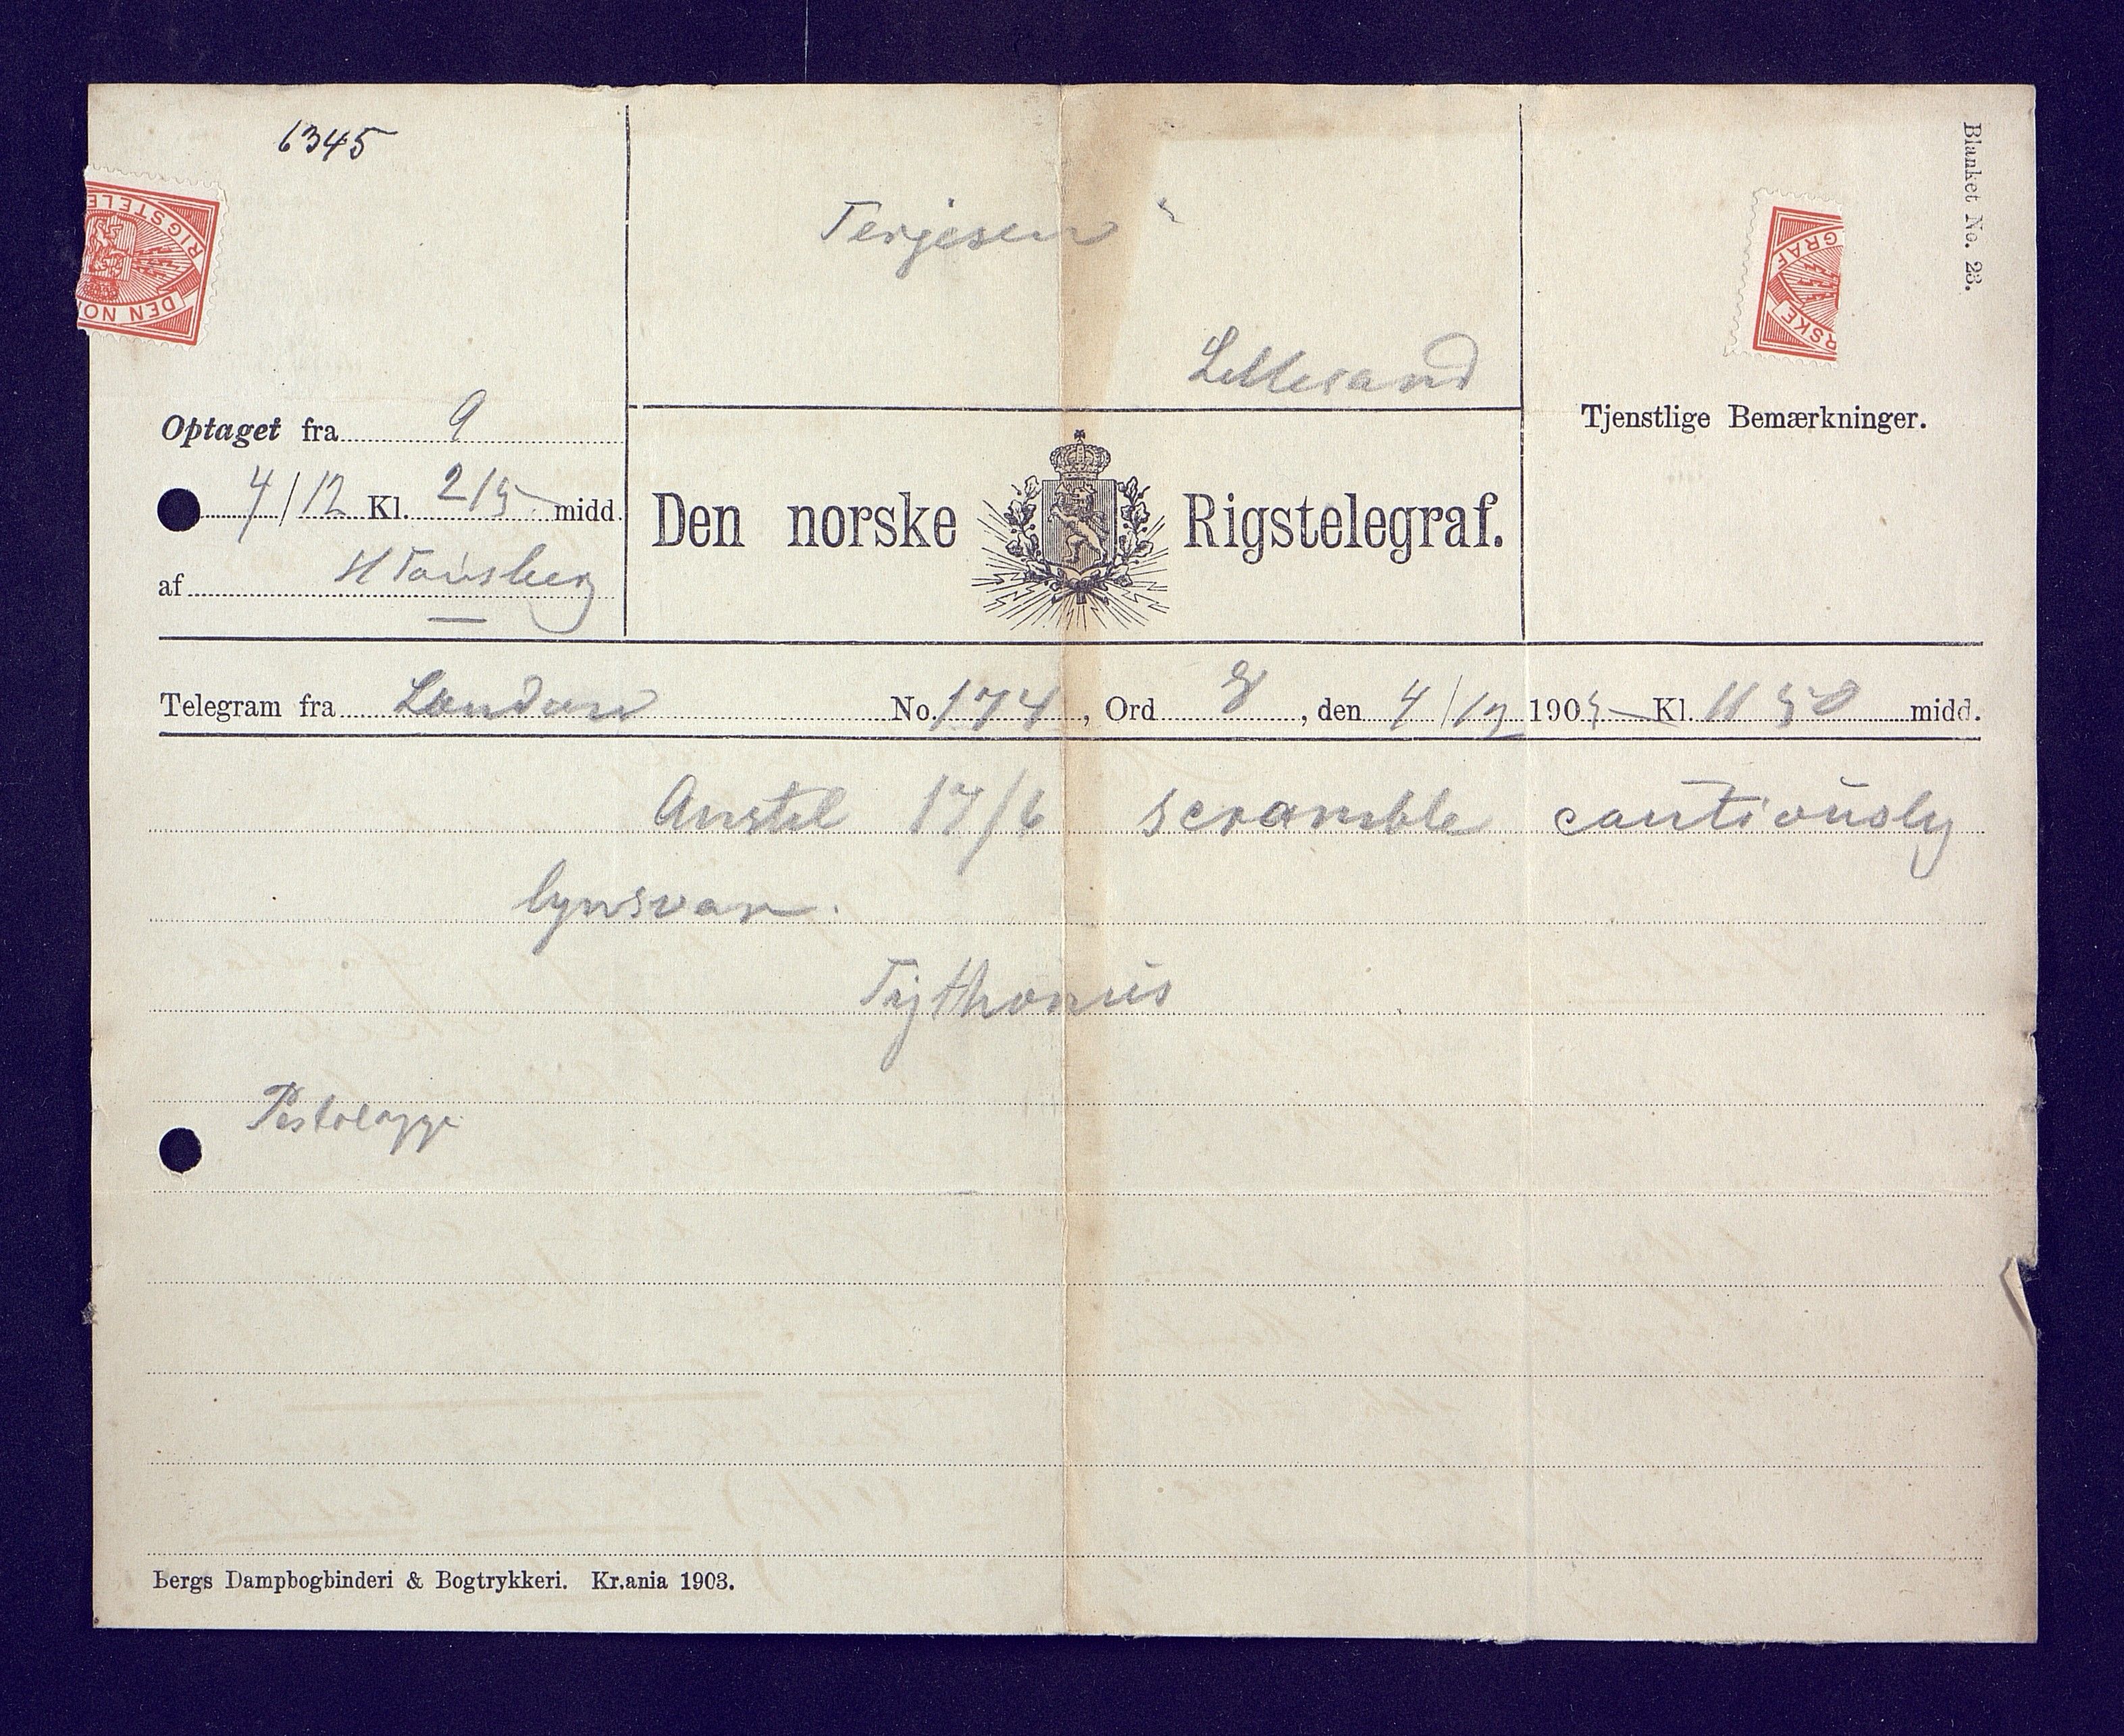 6345
Blanket No. 23.
RIGSTELE
DEN NO
GRAF
RSKE
Terjesen
Lillesand
Optaget fra 9
4/12 Kl. 215 midd.
af H Tønsberg
Den norske Rigstelegraf.
Tjenstlige Bemærkninger.
Telegram fra London No. 174, Ord 8, den 4/12 1905 Kl. 11 50 midd.
Amstel 17/6 scramble cautiously
lynsvar.
Bergs Dampbogbinderi & Bogtrykkeri. Kr.ania 1903.